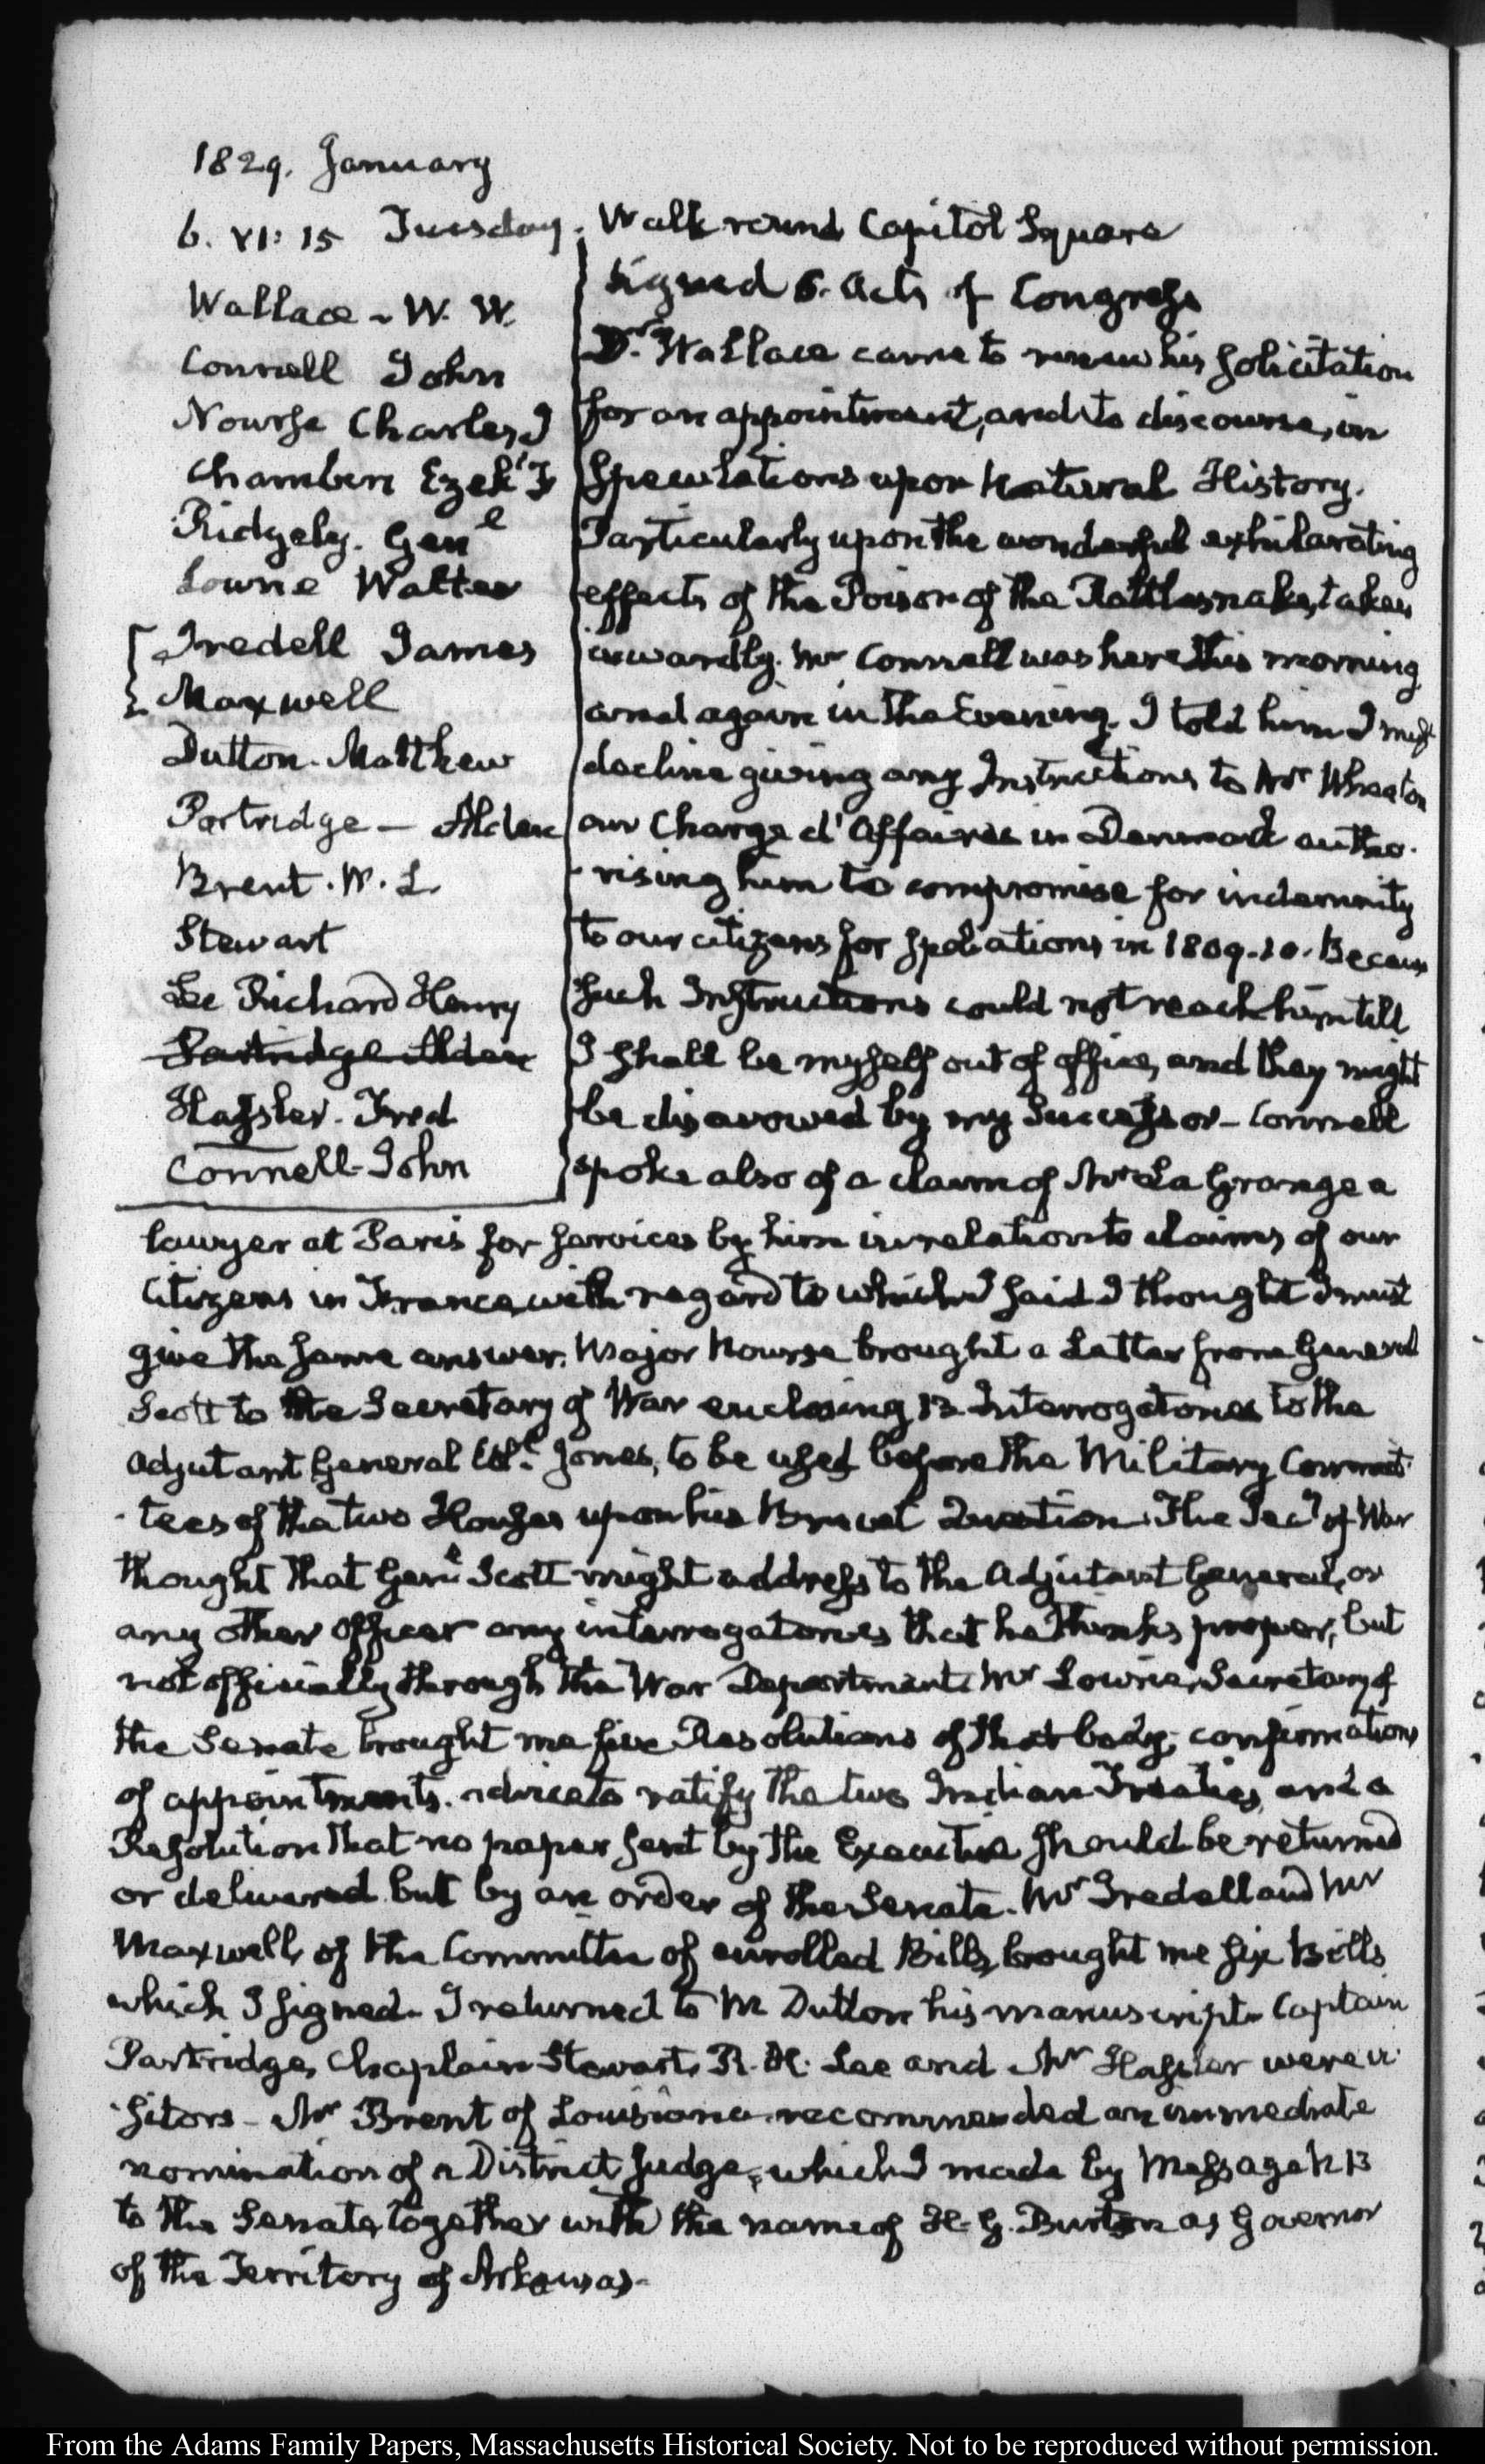 1829. January
6. VI: 15 Tuesday. Walk round Capitol Square
Signed 6. Acts of Congress
Wallace - W. W.
Connell John
Nourse Charles J
Chambers Ezek.l F
Ridgely. Gen.l
Lowrie Walter
Iredell James
Maxwell
Dutton. Matthew
Partridge — Alden
Brent. W. L.
Stewart
Lee Richard Henry
Partridge Alden
Hassler. Fred
Connell - John
Dr. Wallace came to renew his solicitation
for an appointment, and to discourse, in
Speculations upon Natural History.
Particularly upon the wonderful exhilarating
effects of the Poison of the Rattlesnake, taken
inwardly. Mr Connell was here this morning
and again in the Evening. I told him I must
decline giving any Instructions to Mr Wheaton
our Chargé d'Affaires in Denmark autho-
-rising him to compromise for indemnity
to our citizens for spoliations in 1809-10. Because
such Instructions could not reach him till
I shall be myself out of office, and they might
be disavowed by my Successor - Connell
spoke also of a claim of Mr La Grange a
lawyer at Paris for services by him in relation to claims of our
Citizens in France, with regard to which I said I thought I must
give the same answer. Major Nourse brought a Letter from General
Scott to the Secretary of War enclosing 13 Interrogatories to the
Adjutant General Col. Jones, to be used before the Military Commit-
-tees of the two Houses upon his Brevet Question. The Secy of War
thought that Genl Scott might address to the Adjutant General, or
any other officer any interrogatories that he thinks proper, but
not officially through the War Department. Mr Lowrie, Secretary of
the Senate brought me five Resolutions of that body; confirmations
of appointments. advice to ratify the two Indian Treaties, and a
Resolution that no paper sent by the Executive should be returned
or delivered but by an order of the Senate. Mr Iredell and Mr
Maxwell, of the Committee of enrolled Bills, brought me six Bills
which I signed. I returned to Mr Dutton his manuscript. Captain
Partridge, Chaplain Stewart, R. H. Lee and Mr Hassler were vi-
-sitors - Mr Brent of Louisiana recommended an immediate
nomination of a District Judge, which I made by Message N 13
to the Senate, together with the name of H. G. Burton as Governor
of the Territory of Arkansas.
From the Adams Family Papers, Massachusetts Historical Society. Not to be reproduced without permission.